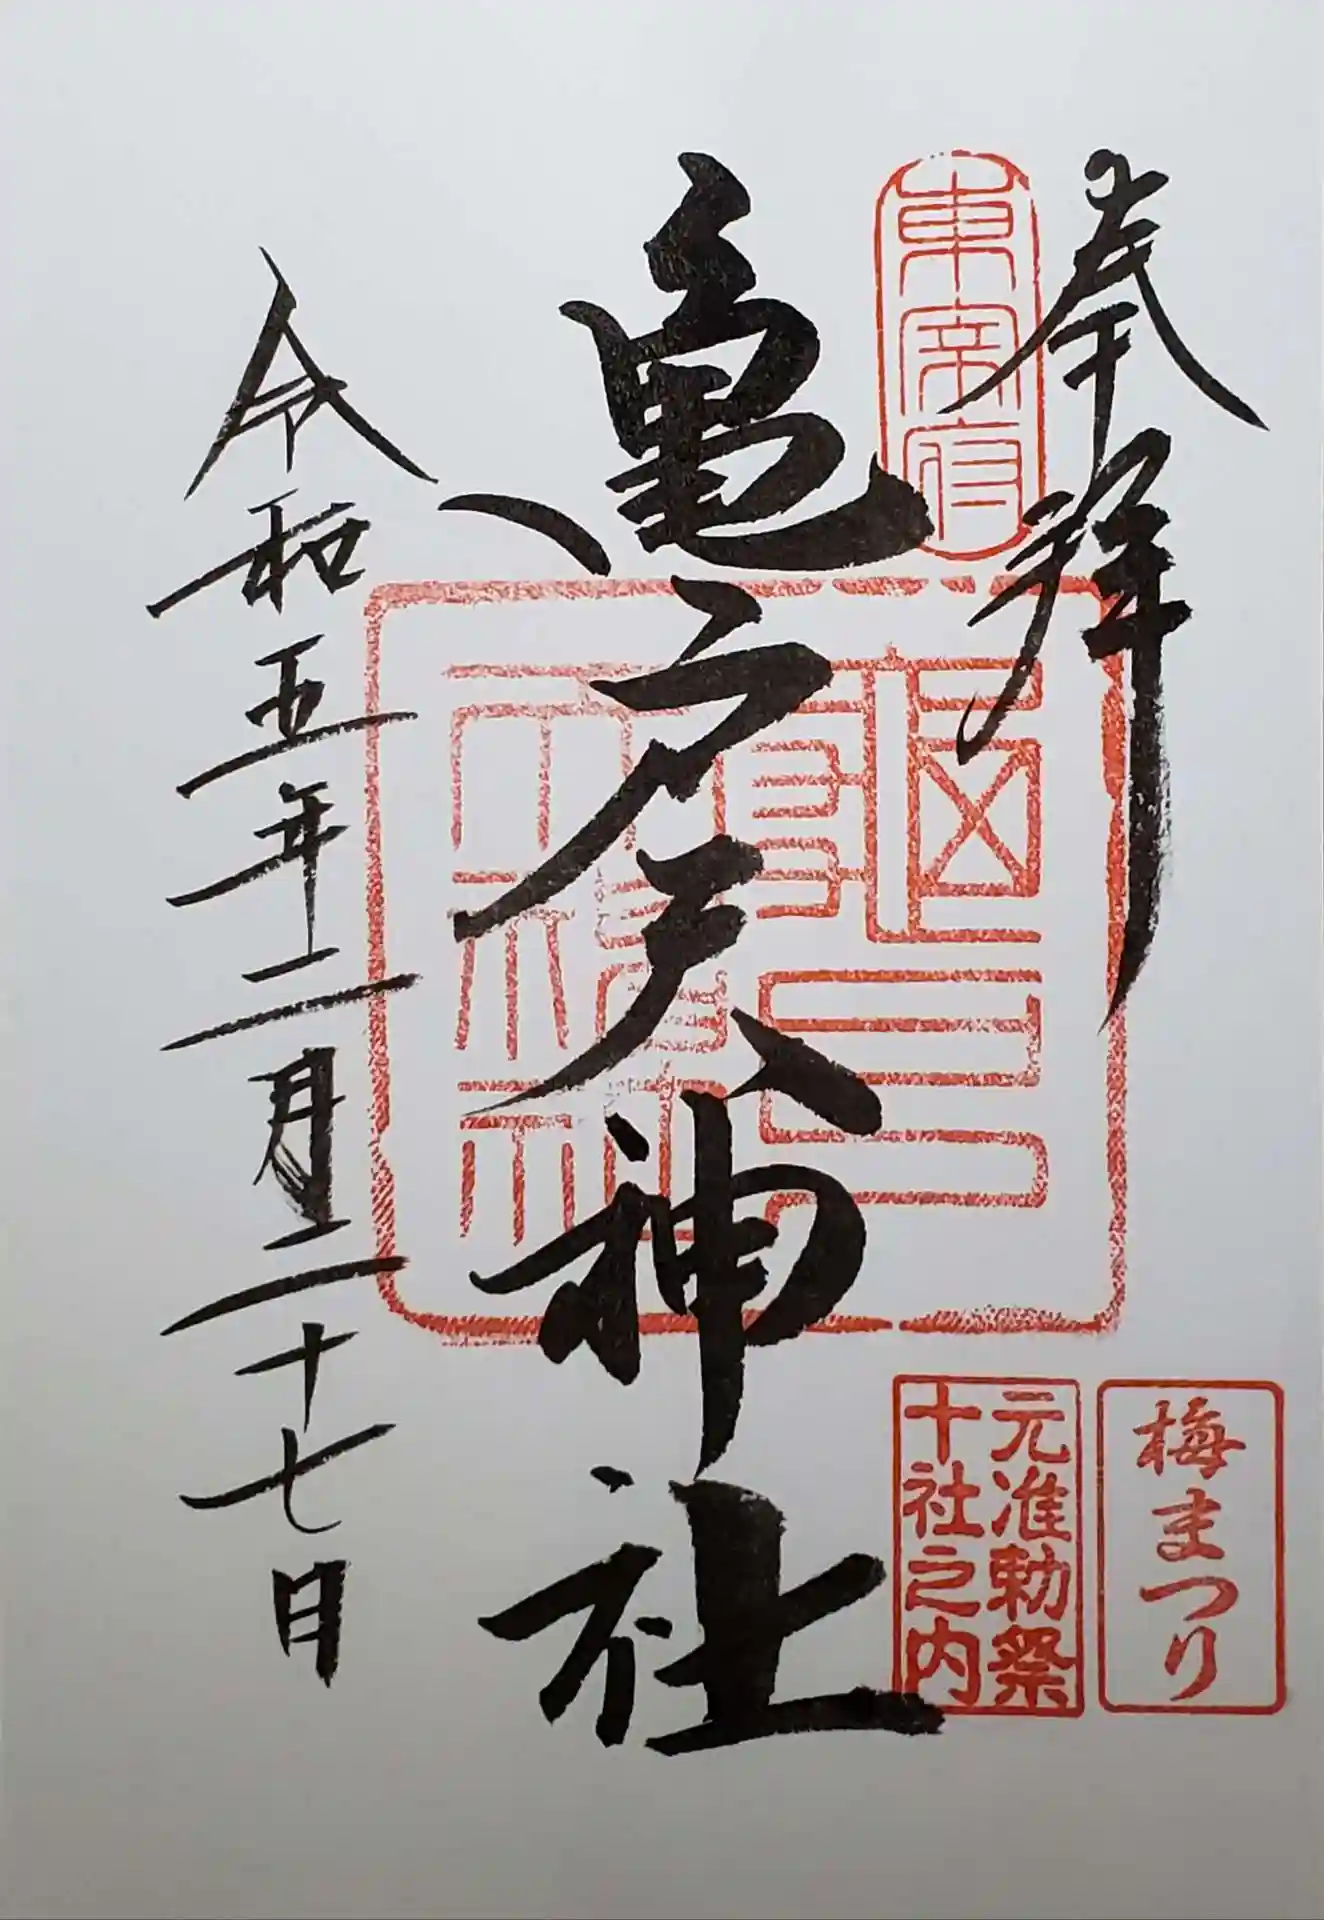 奉拝
東宰府
亀戸天神社
令和五年二月二十七日
梅まつり
元准勅祭
十社之内